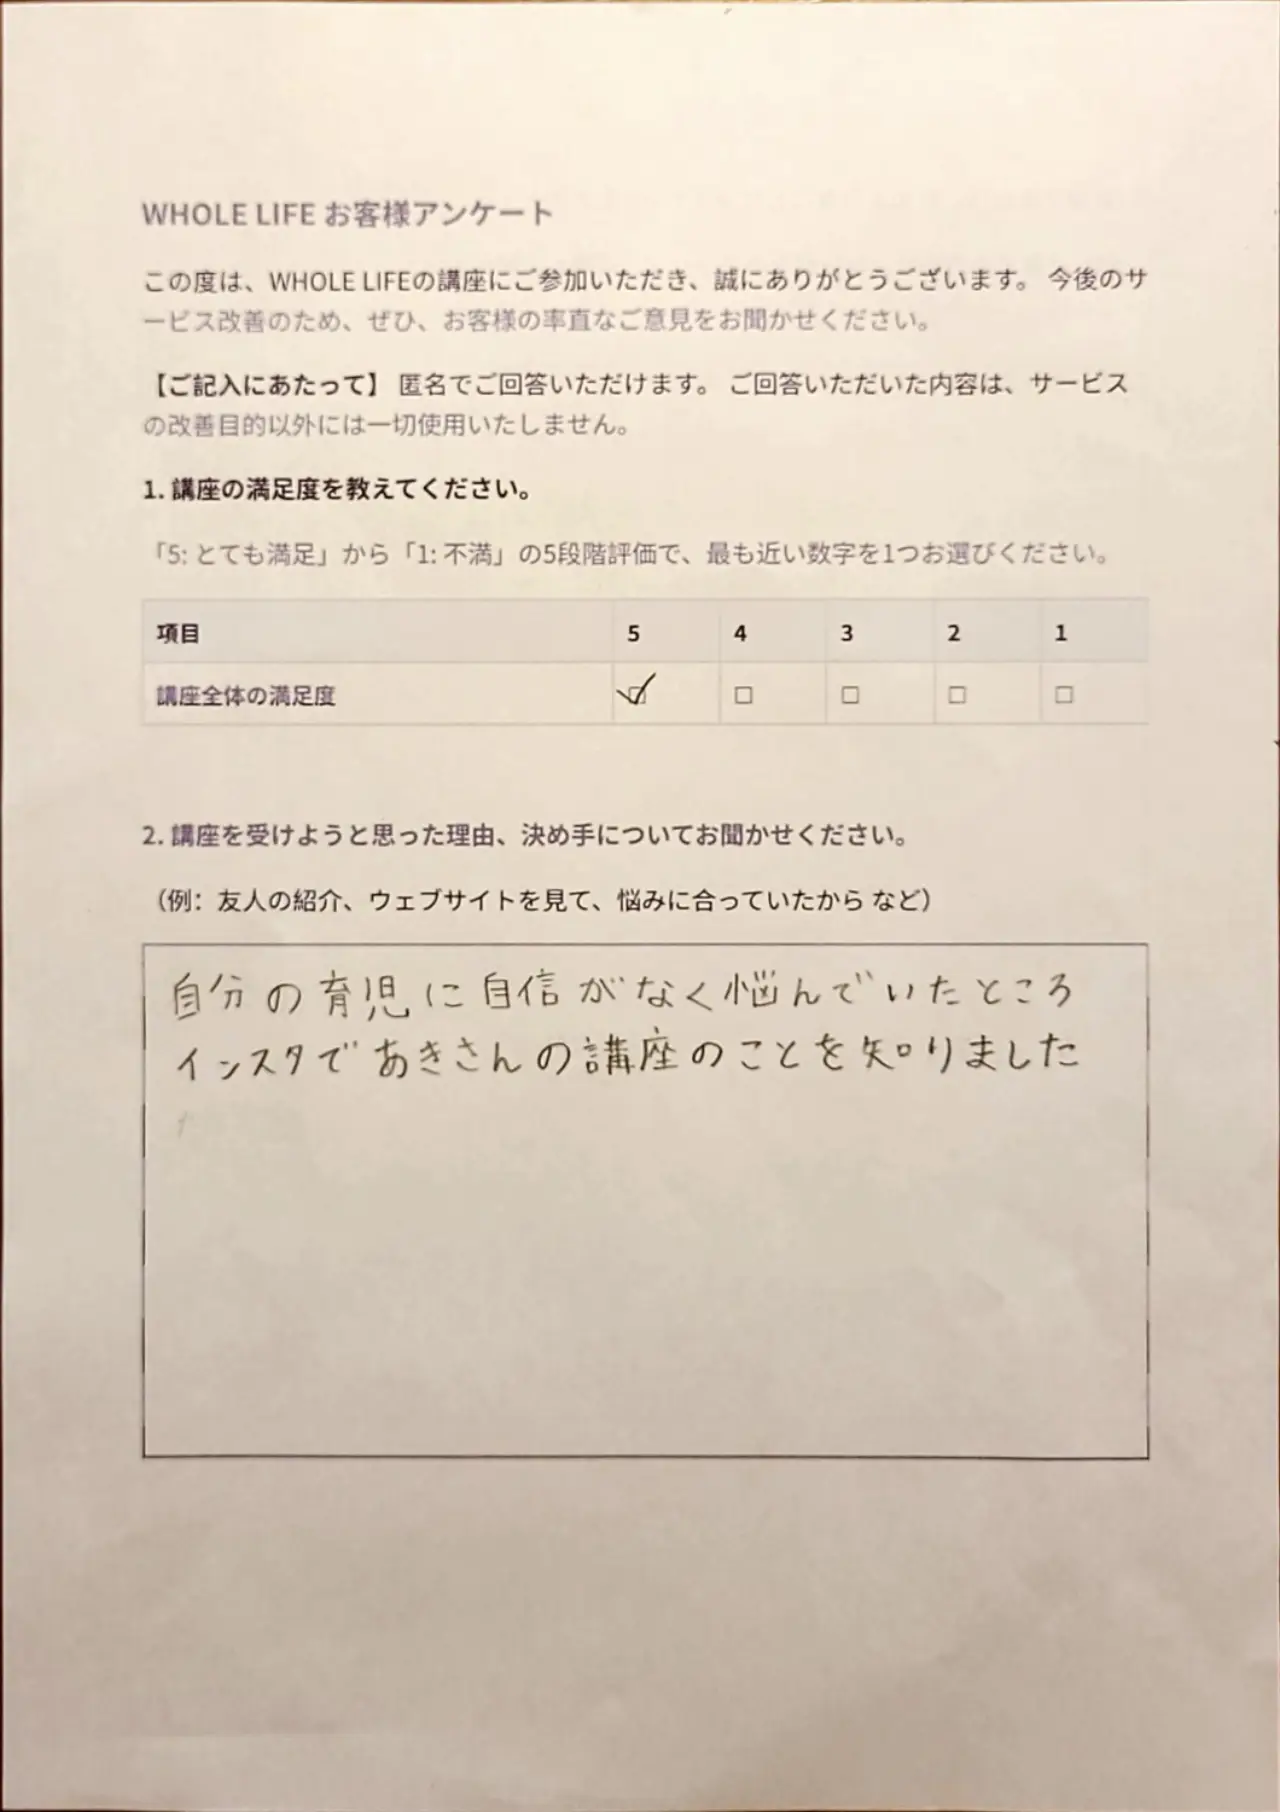 WHOLE LIFE お客様アンケート
この度は、WHOLE LIFEの講座にご参加いただき、誠にありがとうございます。 今後のサ
ービス改善のため、ぜひ、お客様の率直なご意見をお聞かせください。
【ご記入にあたって】 匿名でご回答いただけます。 ご回答いただいた内容は、サービス
の改善目的以外には一切使用いたしません。
1. 講座の満足度を教えてください。
「5: とても満足」から「1: 不満」の5段階評価で、最も近い数字を1つお選びください。
項目 5 4 3 2 1
講座全体の満足度 ☑ □ □ □ □
2. 講座を受けようと思った理由、決め手についてお聞かせください。
（例：友人の紹介、ウェブサイトを見て、悩みに合っていたから など）
自分の育児に自信がなく悩んでいたところ
インスタであきさんの講座のことを知りました